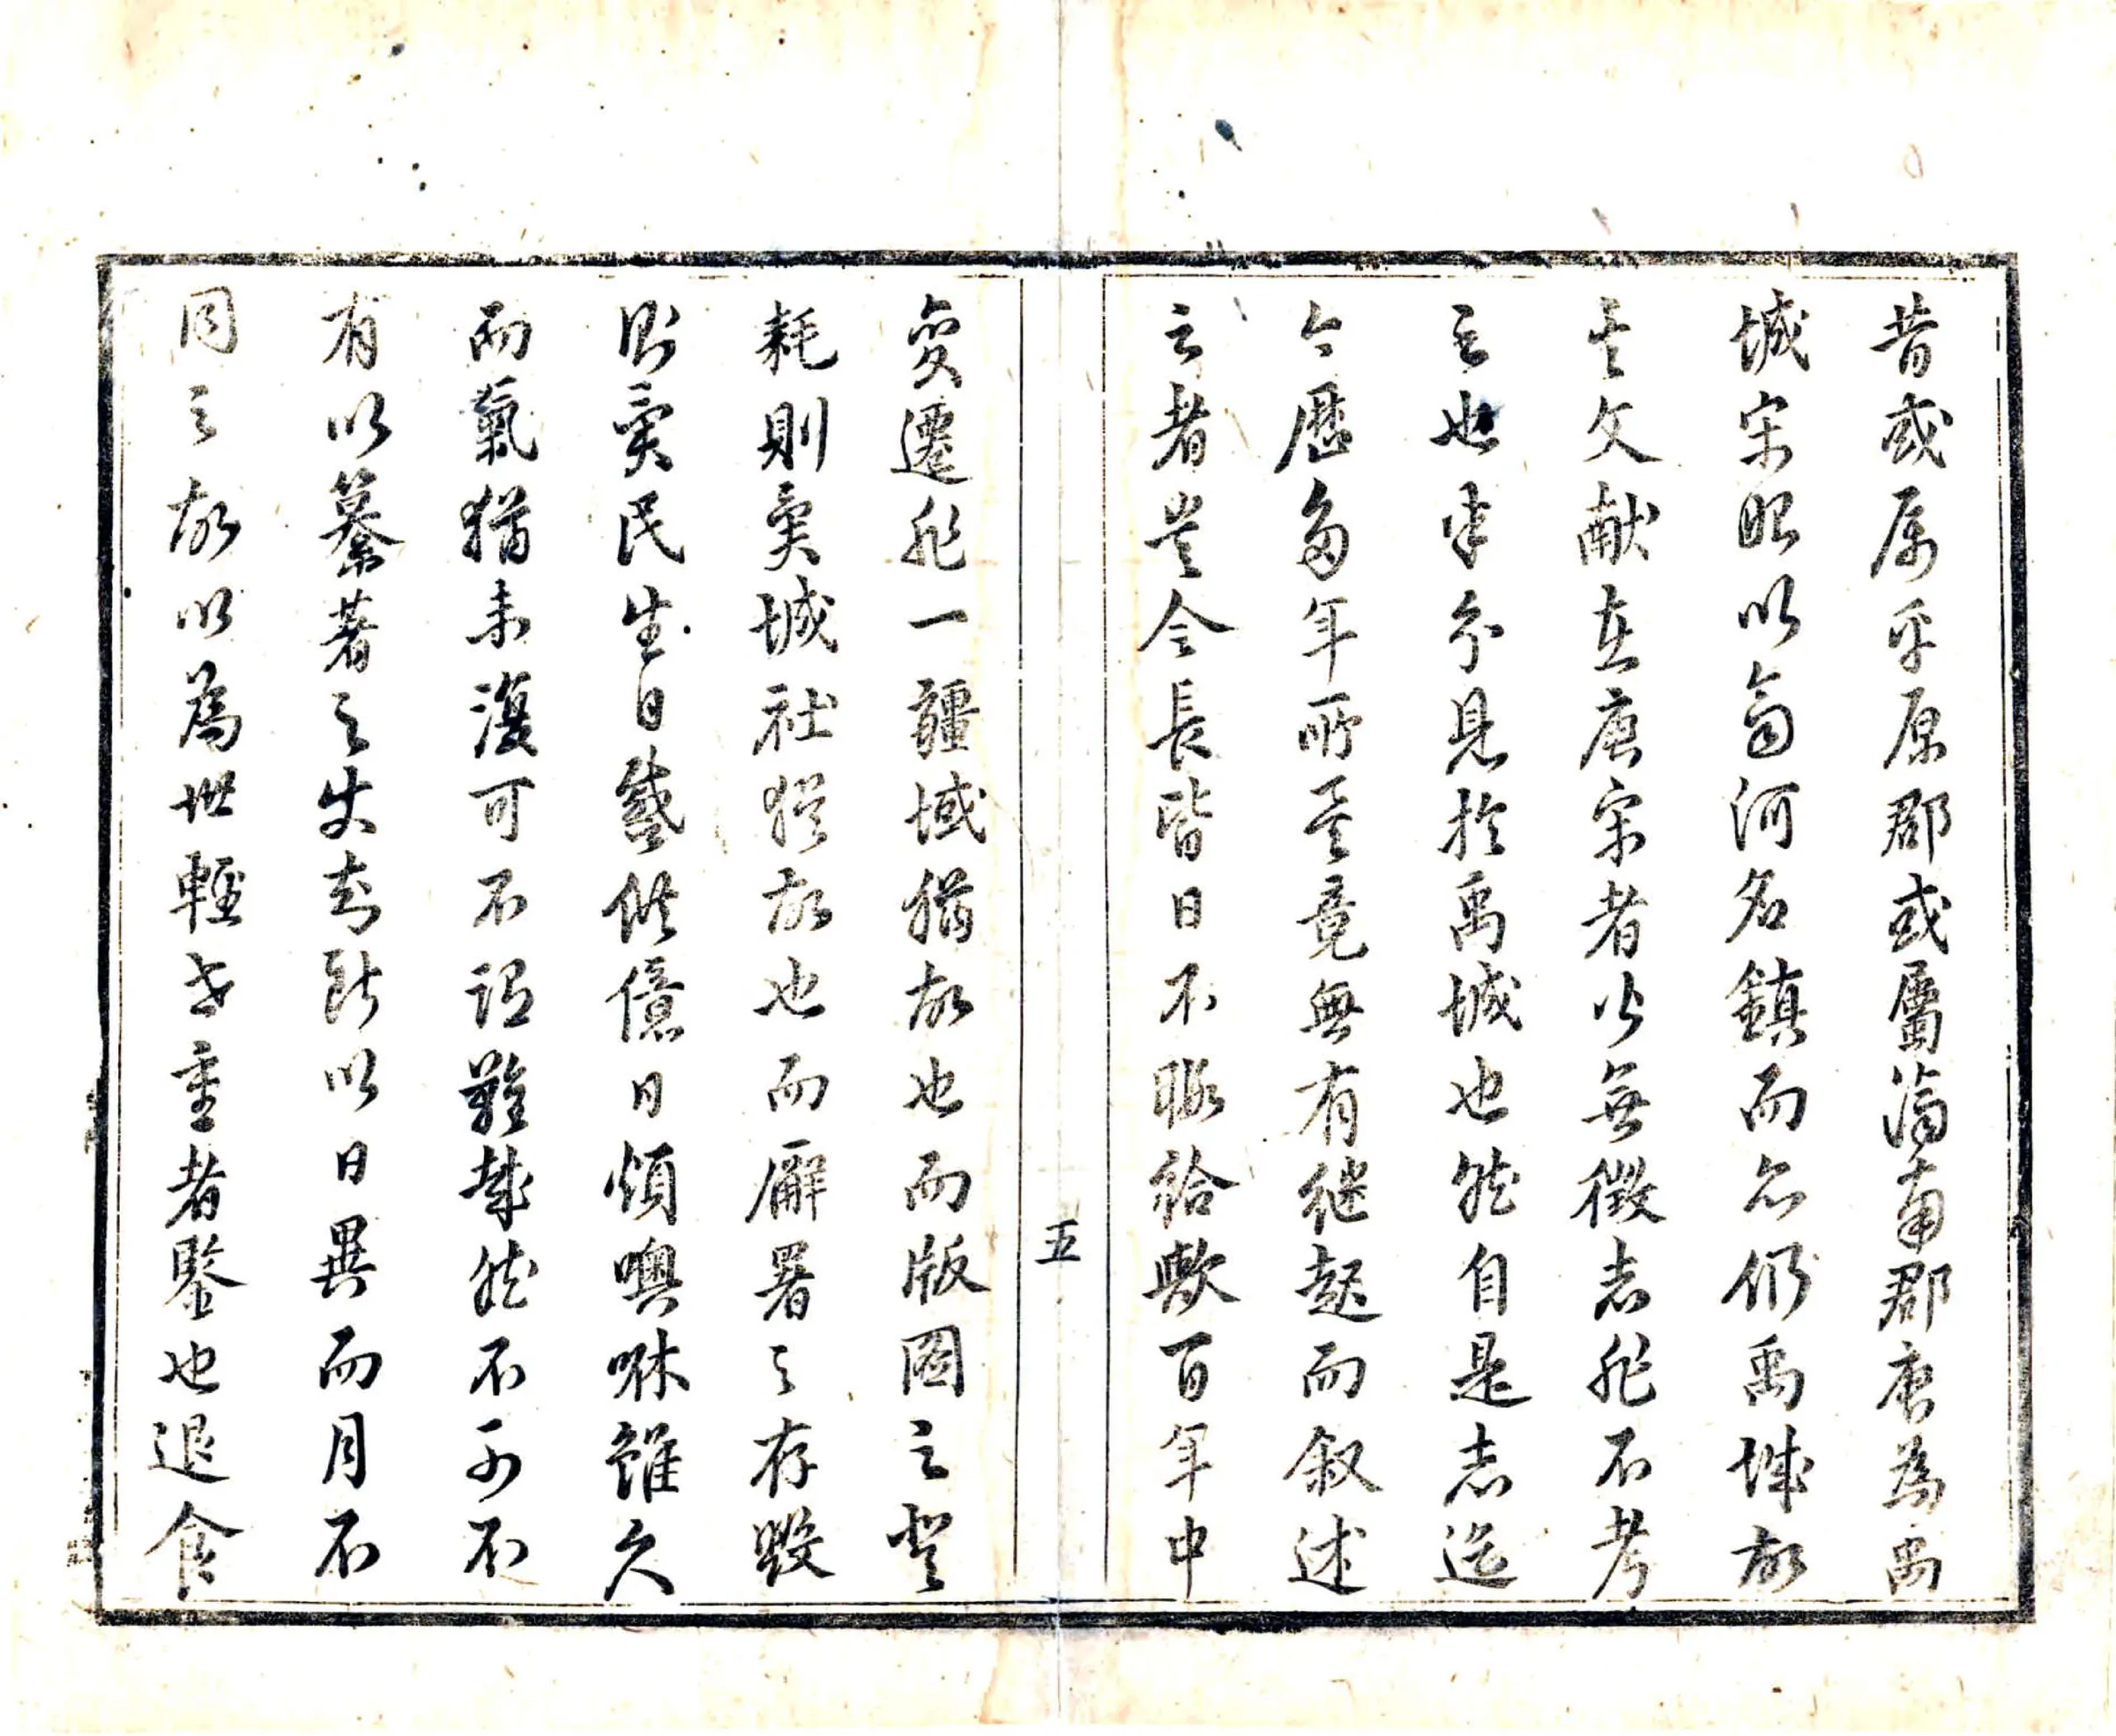 昔或属平原郡或屬濟南郡唐為禹
城宋昭以㫄河名鎮而志仍禹城故
文献在唐宋者以無徵志非不考
言也未見於禹城也然自是志迄
今歷多年所竟無有继起而叙述
云者豈令長皆日不暇給歟百年中
五
變遷非一疆域猶故也而版圖之登
耗則異城社猶故也而廨署之存毀
則異民生日蹙供億日煩噢咻雖久
而氣猶未復可不謂難哉然不可不
有以纂著之失考訂以日異而月不
同之故以為世輕世重者鑒也退食